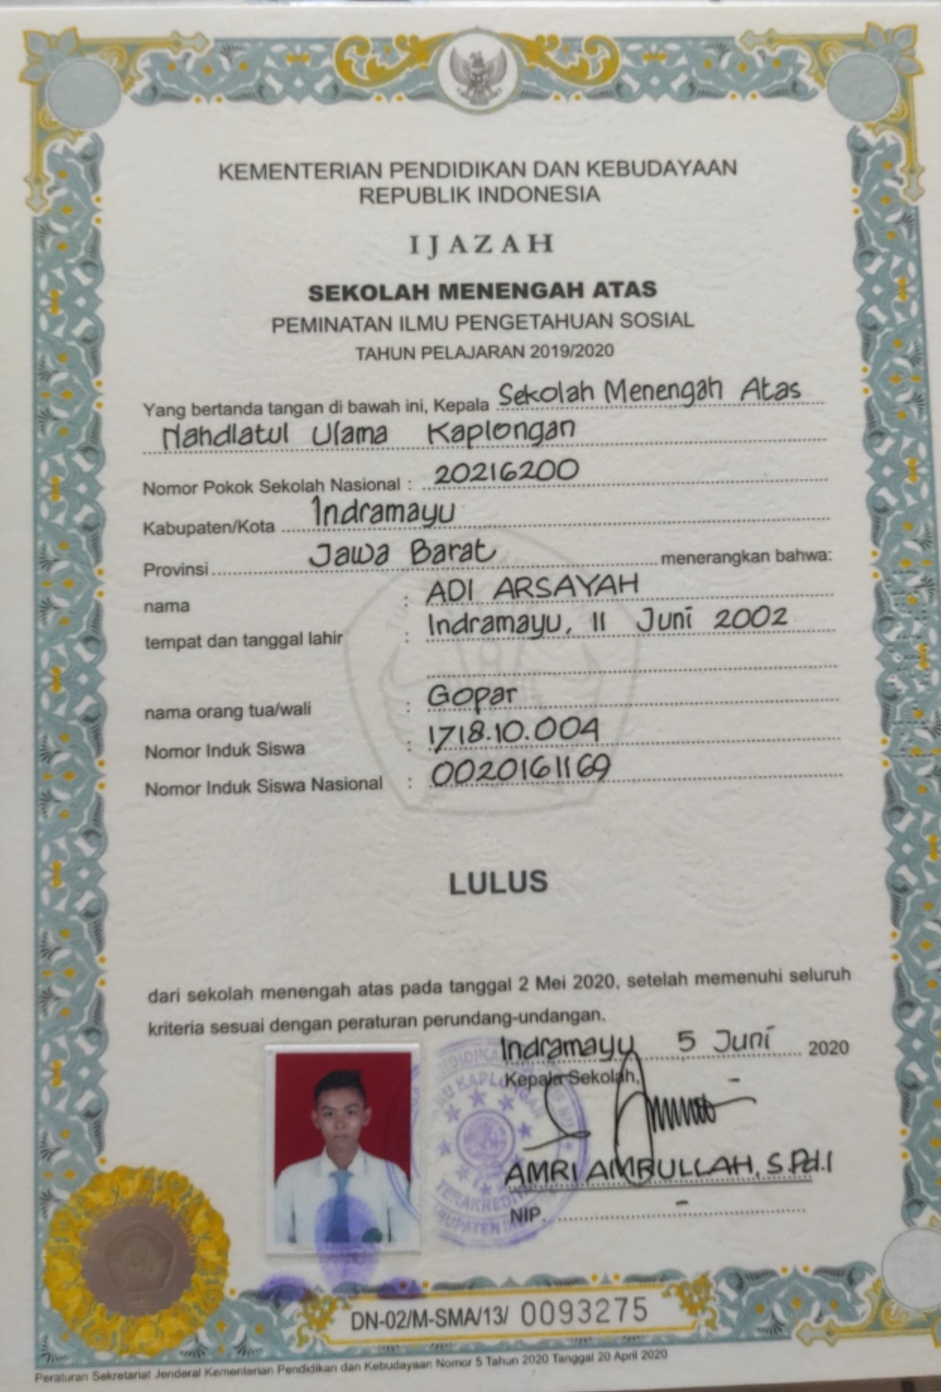 KEMENTERIAN PENDIDIKAN DAN KEBUDAYAAN
REPUBLIK INDONESIA
IJAZAH
SEKOLAH MENENGAH ATAS
PEMINATAN ILMU PENGETAHUAN SOSIAL
TAHUN PELAJARAN 2019/2020
Yang bertanda tangan di bawah ini, Kepala Sekolah Menengah Atas
Nahdlatul Ulama Kaplongan
Nomor Pokok Sekolah Nasional : 20216200
Kabupaten/Kota Indramayu
Provinsi Jawa Barat menerangkan bahwa:
nama : ADI ARSAYAH
tempat dan tanggal lahir : Indramayu, 11 Juni 2002
nama orang tua/wali : Gopar
Nomor Induk Siswa : 1718.10.004
Nomor Induk Siswa Nasional : 0020161169
LULUS
dari sekolah menengah atas pada tanggal 2 Mei 2020, setelah memenuhi seluruh
kriteria sesuai dengan peraturan perundang-undangan.
Indramayu 5 Juni 2020
Kepala Sekolah,
AMRI AMRULLAH, S.Pd.I
NIP. -
DN-02/M-SMA/13/ 0093275
Peraturan Sekretariat Jenderal Kementerian Pendidikan dan Kebudayaan Nomor 5 Tahun 2020 Tanggal 20 April 2020